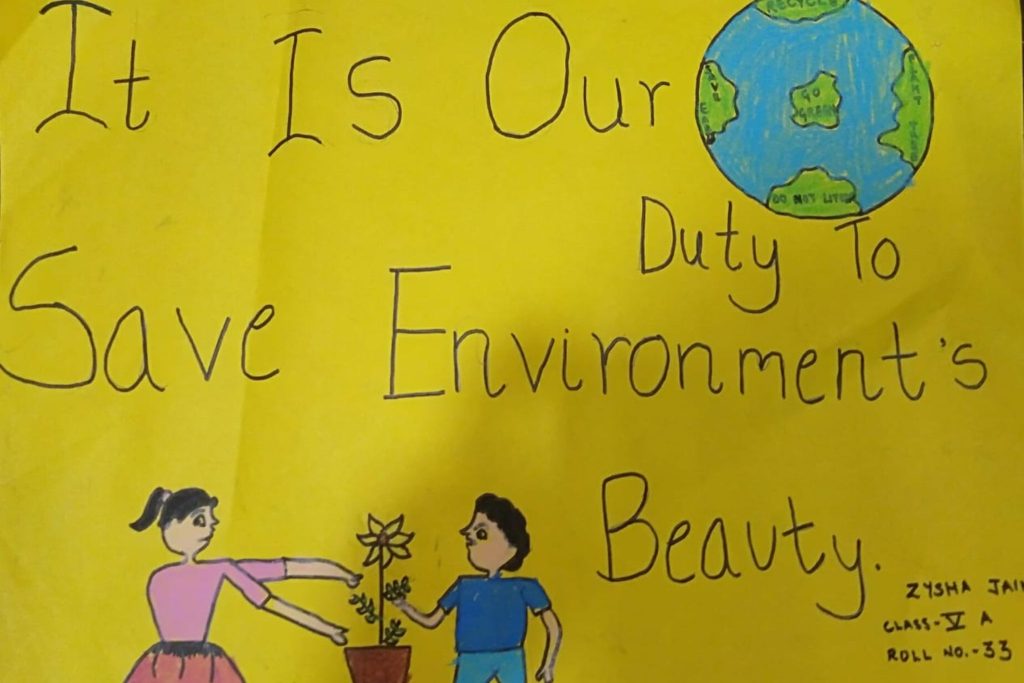 It Is Our
RECYCLE
SAVE
GO
GREEN
DO NOT LITTER
Duty To
Save Environment's
Beauty.
ZYSHA JAIN
CLASS-V A
ROLL NO.-33